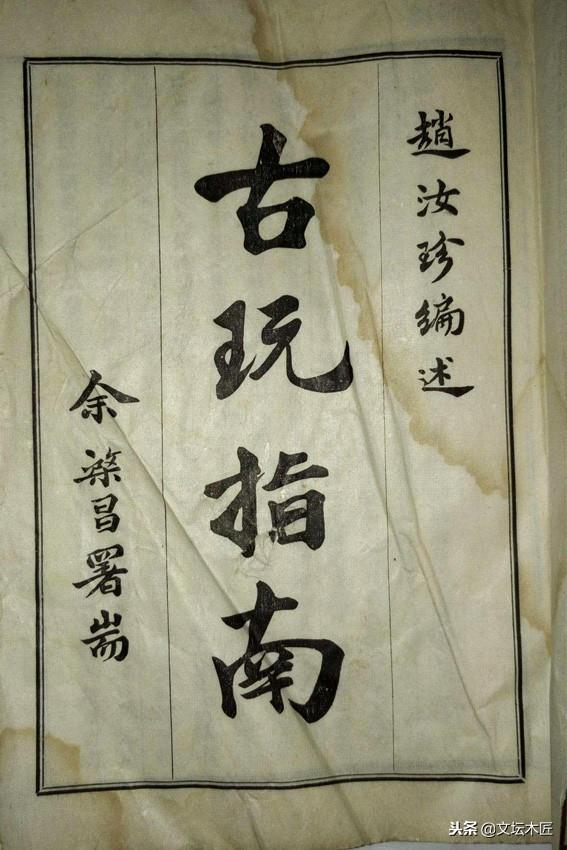 趙汝珍編述
古玩指南
余棨昌署耑
头条 @文坛木匠